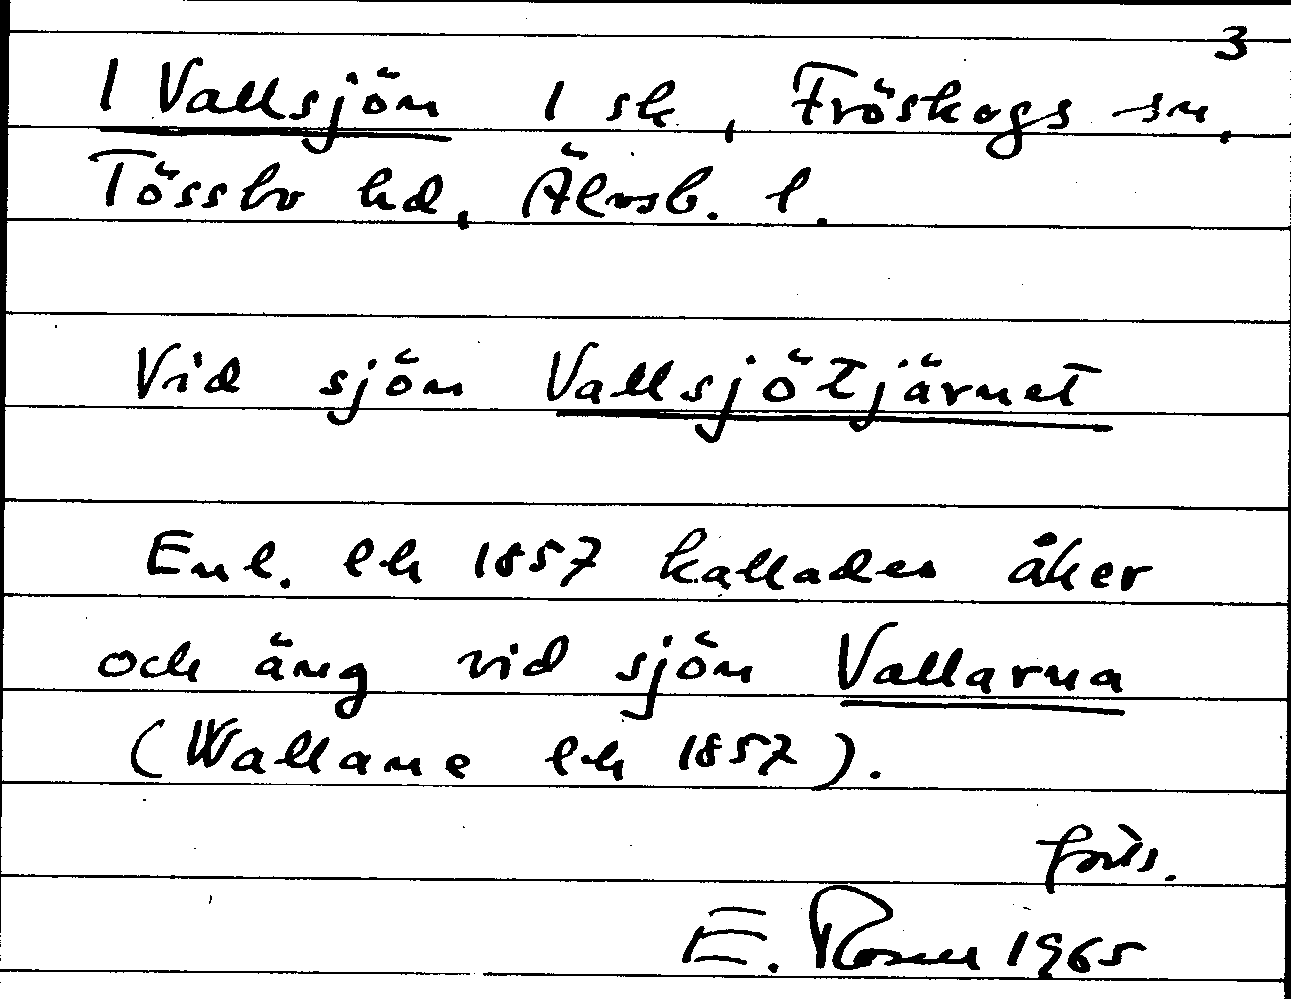 3
1 Vallsjön 1 sk, Fröskogs sn,
Tössbo hd, Älvsb. l.
Vid sjön Vallsjötjärnet
Enl. lh 1857 kallades åker
och äng vid sjön Vallarna
(Wallane lh 1857).
forts.
E. Rosell 1965